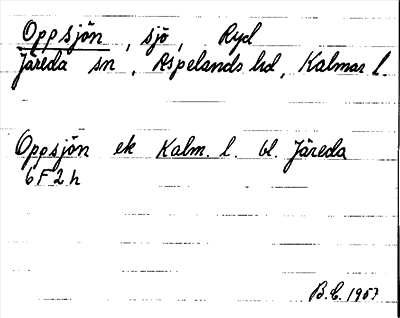 Oppsjön, sjö, Ryd
Järeda sn, Aspelands hd, Kalmar l.
Oppsjön ek Kalm. l. bl. Järeda
6F2h
B.E. 1957